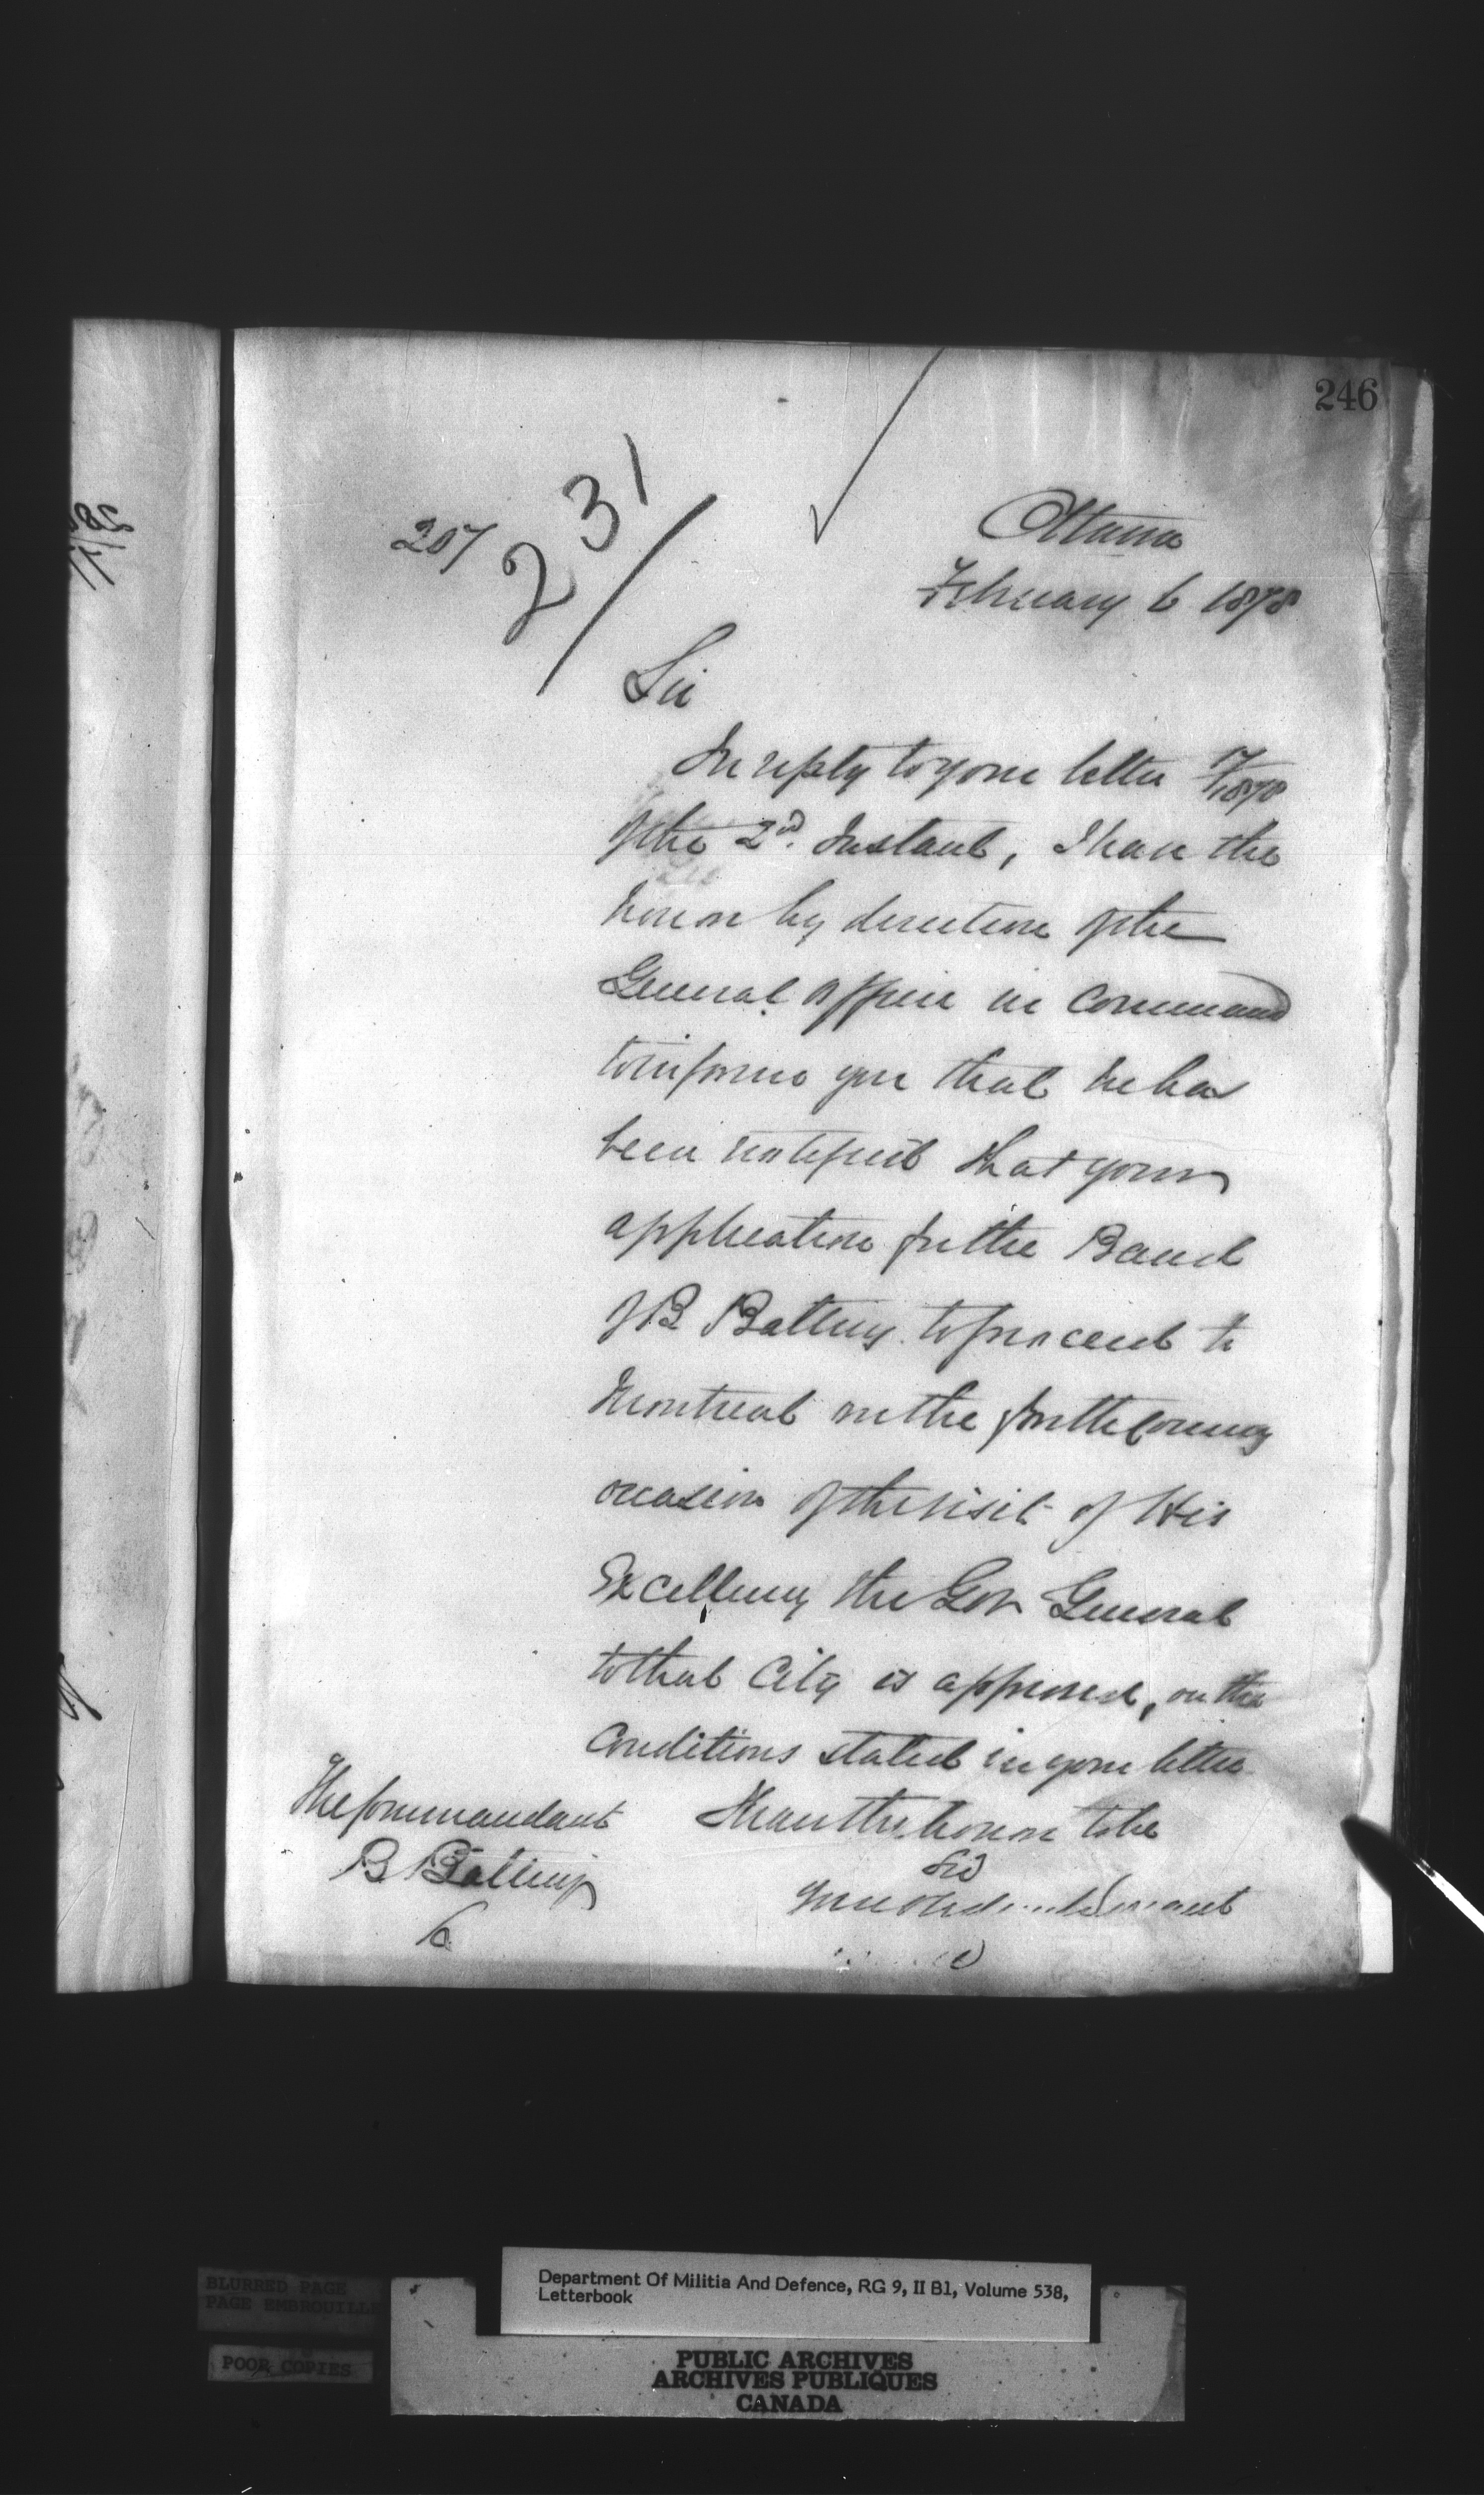 246
207
231
Ottawa
February 6 1878
Sir
In reply to your letter 17/1878
of the 2nd. Instant, I have the
honor by direction of the
General officer in command
to inform you that he has
been notified that your
application for the Band
of B Battery to proceed to
Montreal on the forthcoming
occasion of the visit of His
Excellency the Gov General
to that City is approved, on the
Conditions stated in your letter
I have the honor to be
Sir
your Servant
The Commandant
B Battery
Department Of Militia And Defence, RG 9, II B1, Volume 538,
Letterbook
BLURRED PAGE
PAGE EMBROUILLE
POOR COPIES
PUBLIC ARCHIVES
ARCHIVES PUBLIQUES
CANADA